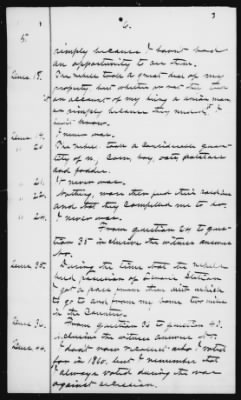 3
6.
5.
simply because I havn't had
an opportunity to see them.
Ques 18. The rebels took a great deal of my
property, but whether or not they did
on account of my being a union man
or simply because they needed it I
don't know.
Ques 19. I never was.
" 20. The rebels took a considerable quan-
tity of my corn, hay, oats, potatoes
and fodder.
" 21. I never was.
" 22. Nothing, more than just their
and what they compelled me to do.
" 24. I never was.
From question 24 to ques-
tion 35 inclusive the witness answers
no.
Ques 35. During the time that the rebels
had possession of
I got a pass from them with which
to go to and from my home two miles
in the Country.
From question 36 to question 43.
inclusive the witness answers no.
Ques 44. I don't now recollect who I voted
for in 1860, but I remember that
I always voted during the war
against secession.